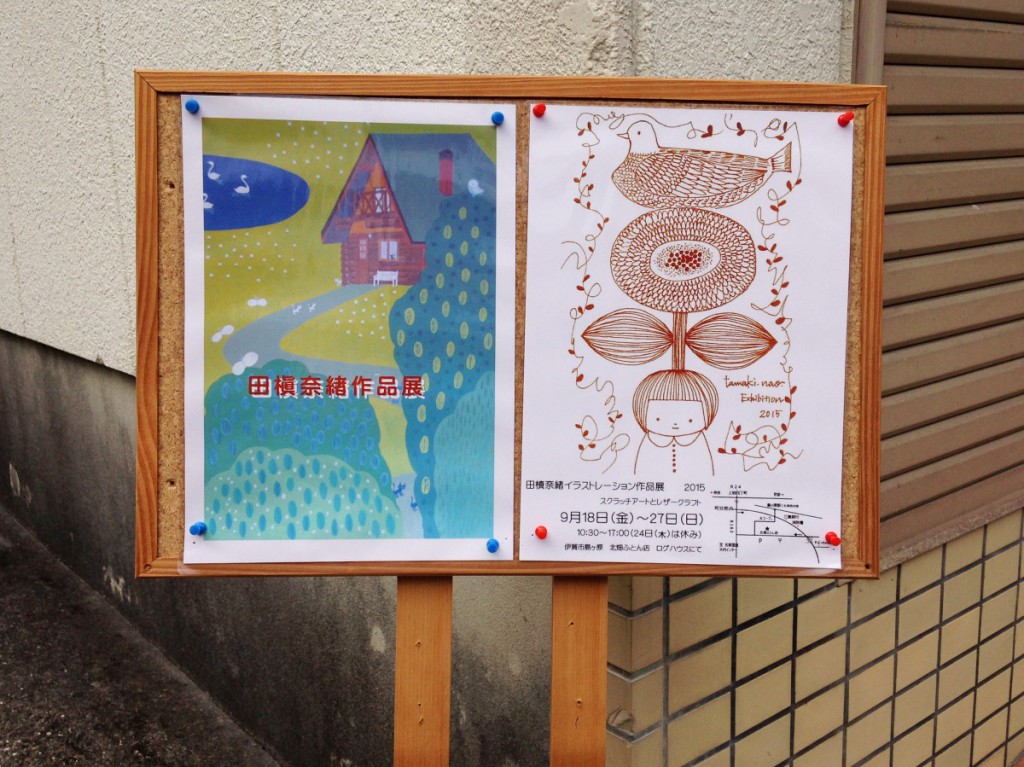 田槇奈緒作品展
tamaki.nao.
Exhibition
2015
田槇奈緒イラストレーション作品展 2015
スクラッチアートとレザークラフト
9月18日(金)～27日(日)
10:30～17:00(24日(木)は休み)
伊賀市島ヶ原 北畑ふとん店 ログハウスにて